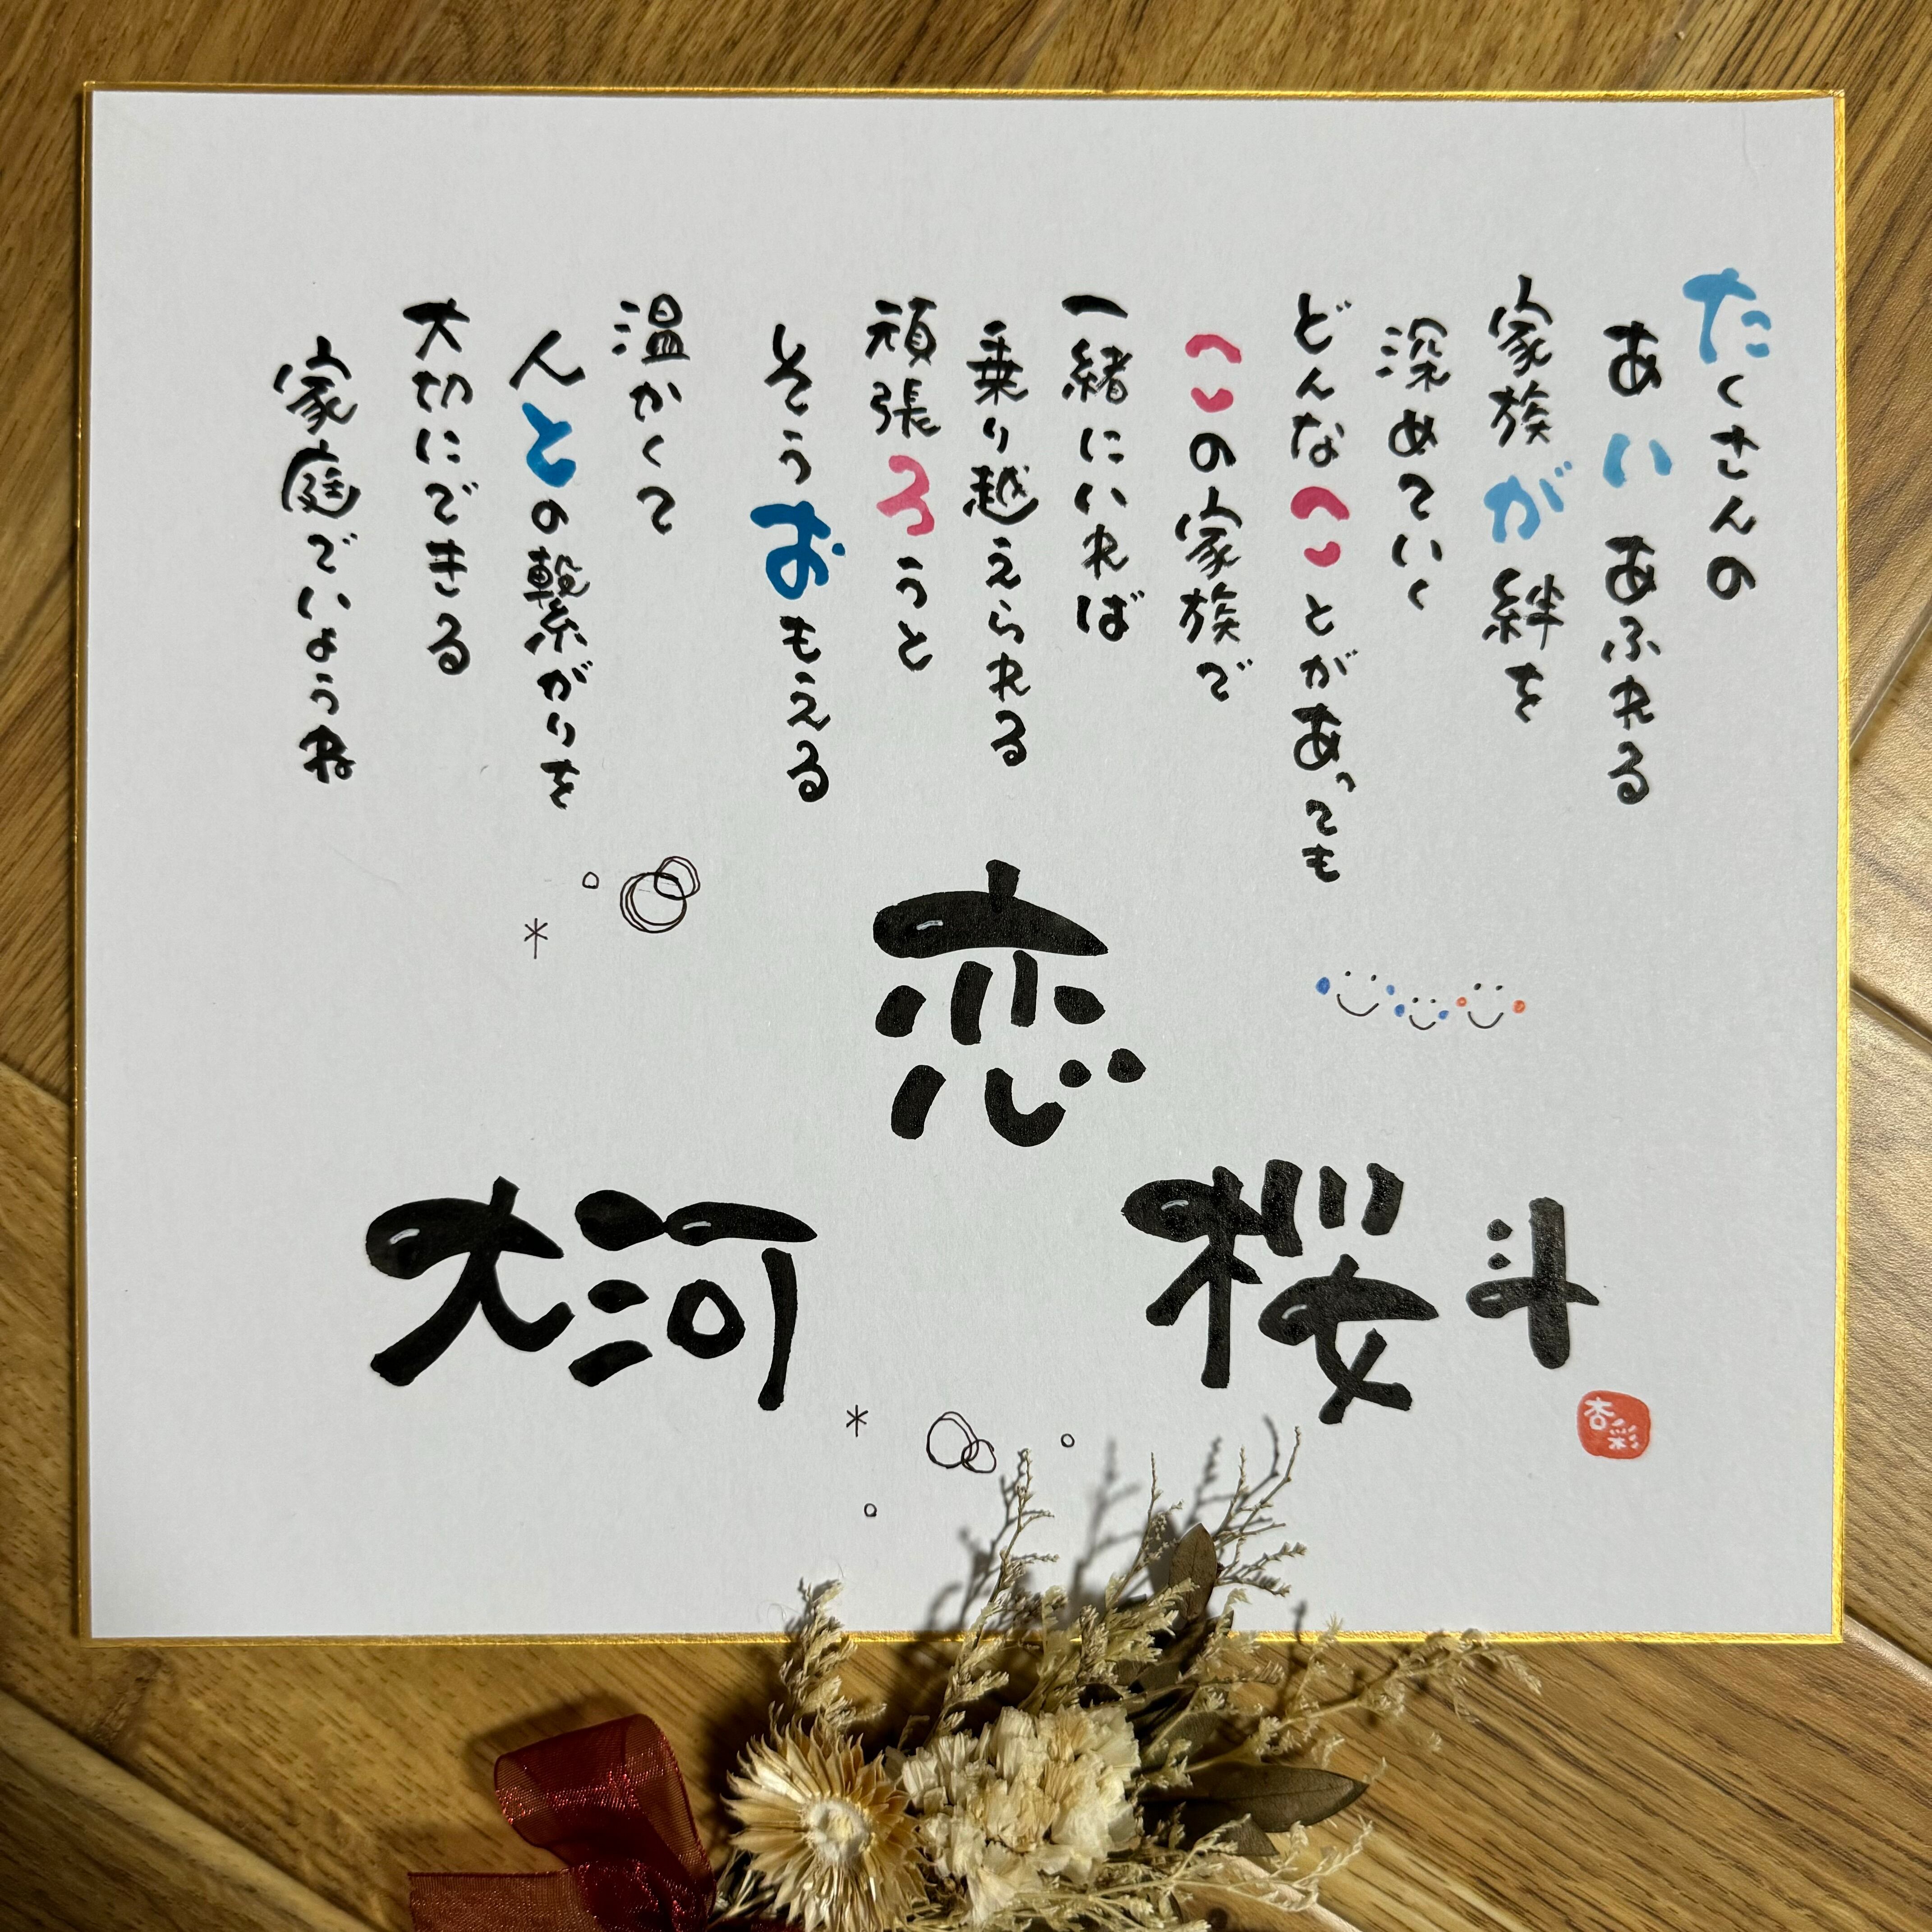 たくさんの
あいあふれる
家族が絆を
深めていく
どんなことがあっても
この家族で
一緒にいれば
乗り越えられる
頑張ろうと
そうおもえる
温かくて
人との繋がりを
大切にできる
家庭でいようね
恋
大河
桜斗
杏彩